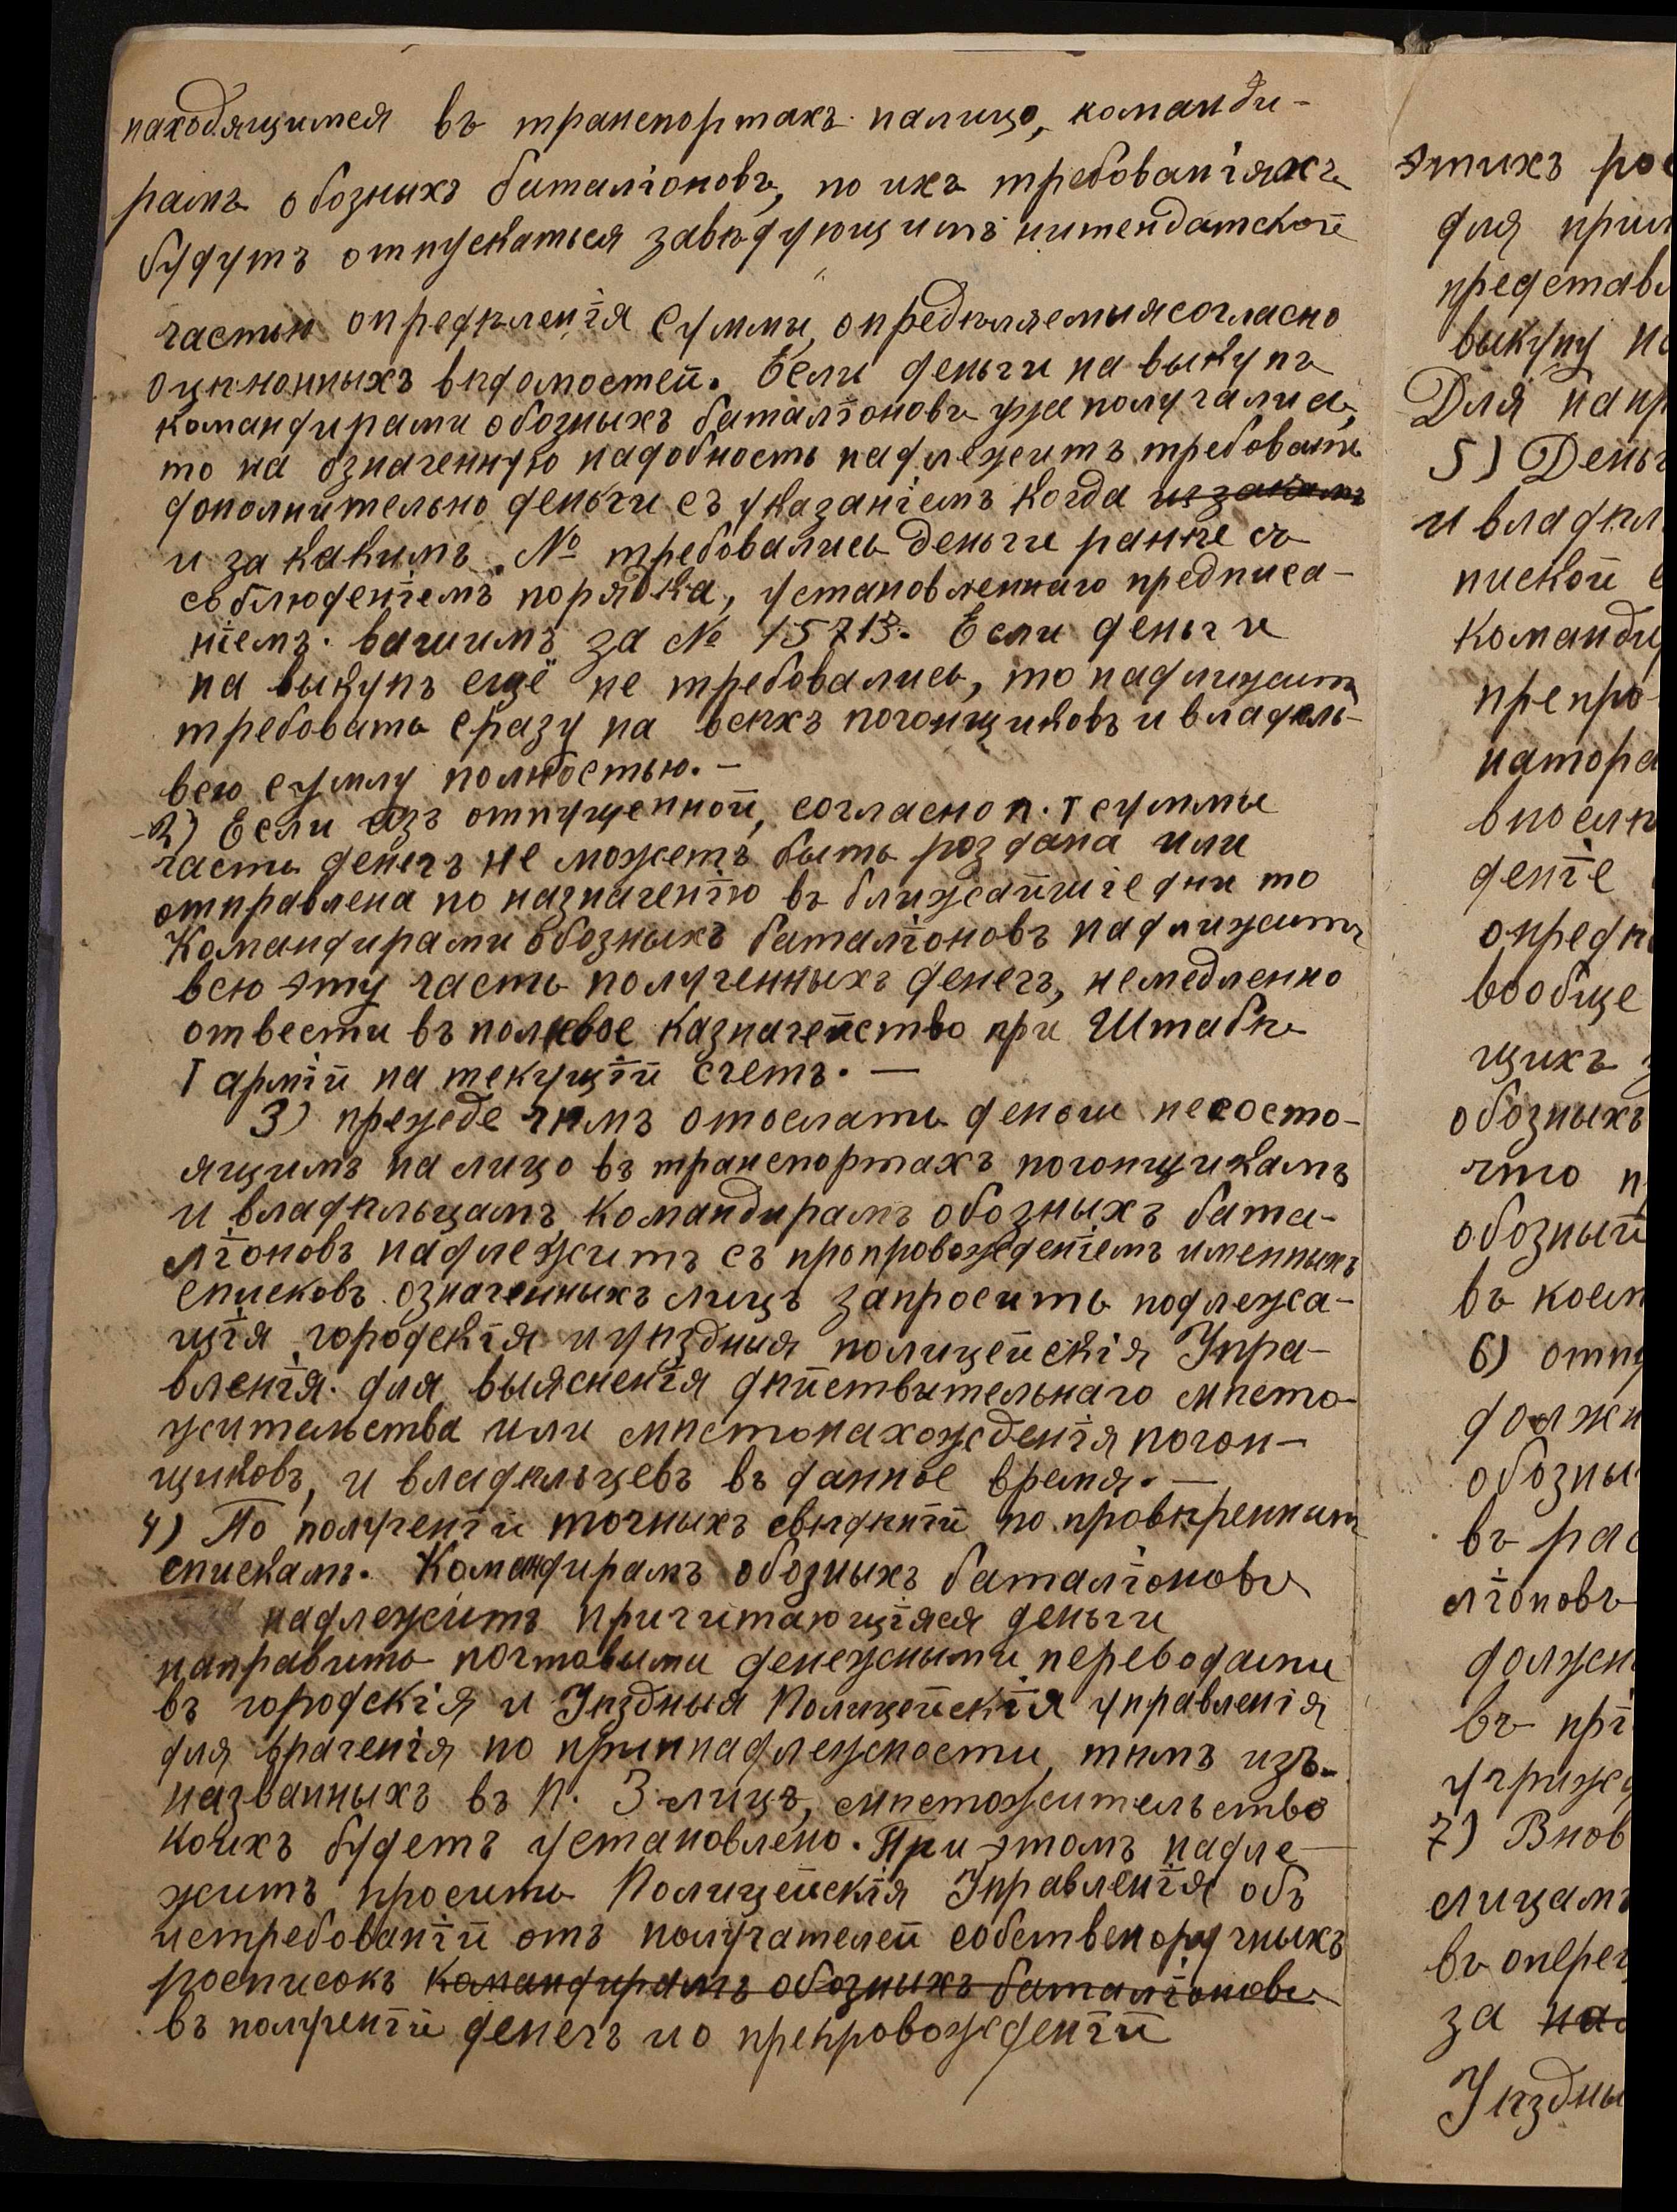 находящимся въ транспортахъ налицо, команди-
рамъ обозныхъ баталіоновъ, по ихъ требованіяхъ
будутъ отпускаться завѣдующимъ интендатской
частью опредѣленія суммы, опредѣляемыя согласно
оцѣночныхъ вѣдомостей. Если деньги на выкупъ
командирами обозныхъ баталіоновъ уже получались,
то на означенную надобность надлежитъ требовать
дополнительно деньги съ указаніемъ когда
и за какимъ № требовались деньги ранѣе съ
соблюденіемъ порядка, установленнаго предписа-
ніемъ. вашимъ за № 15713. Если деньги
на выкупъ ещё не требовались, то надлижитъ
требовать сразу на всѣхъ погонщиковъ и владѣль-
всю сумму полностью. —
2) Если изъ отпущенной, согласно п. I суммы
часть денегъ не можетъ быть роздана или
отправлена по назначенію въ ближайшіе дни то
Командирами обозныхъ баталіоновъ надлижитъ
всю эту часть полученныхъ денегъ, немедленно
отвести въ полевое казначейство при Штабѣ
I арміи на текущій счетъ. —
3) прежде чѣмъ отослать деньги несосто-
ящимъ на лицо въ транспортахъ погонщикамъ
и владѣльцамъ командирамъ обозныхъ бата-
ліоновъ надлежитъ съ пропровожденіемъ именныхъ
списковъ означенныхъ лицъ запросить подлежа-
щія городскія и уѣздныя полицейскія Упра-
вленія. для выясненія дѣйствительнаго мѣсто-
жительства или мѣстонахожденія погон-
щиковъ, и владѣльцевъ въ данное время. —
4) По полученіи точныхъ свѣдѣній по провѣреннымъ
спискамъ. Командирамъ обозныхъ баталіоновъ
надлежитъ причитающіяся деньги
направить почтовыми денежными переводами
въ городскія и Уѣздныя Полицейскія управленія
для врученія по принадлежности, тѣмъ изъ
названныхъ въ п. 3 лицъ, мѣстожительство
коихъ будетъ установлено. При этомъ надле-
житъ просить Полицейскія Управленія объ
истребованіи отъ получателей собственоручныхъ
росписокъ командирамъ обозныхъ баталіоновъ
въ полученіи денегъ и о препровожденіи
этихъ
для
выкупу
Для
5)
и
пиской
вообще
щихъ
обозныхъ
что
обозный
въ
6)
въ
ліоновъ
въ
7)
лицамъ
за